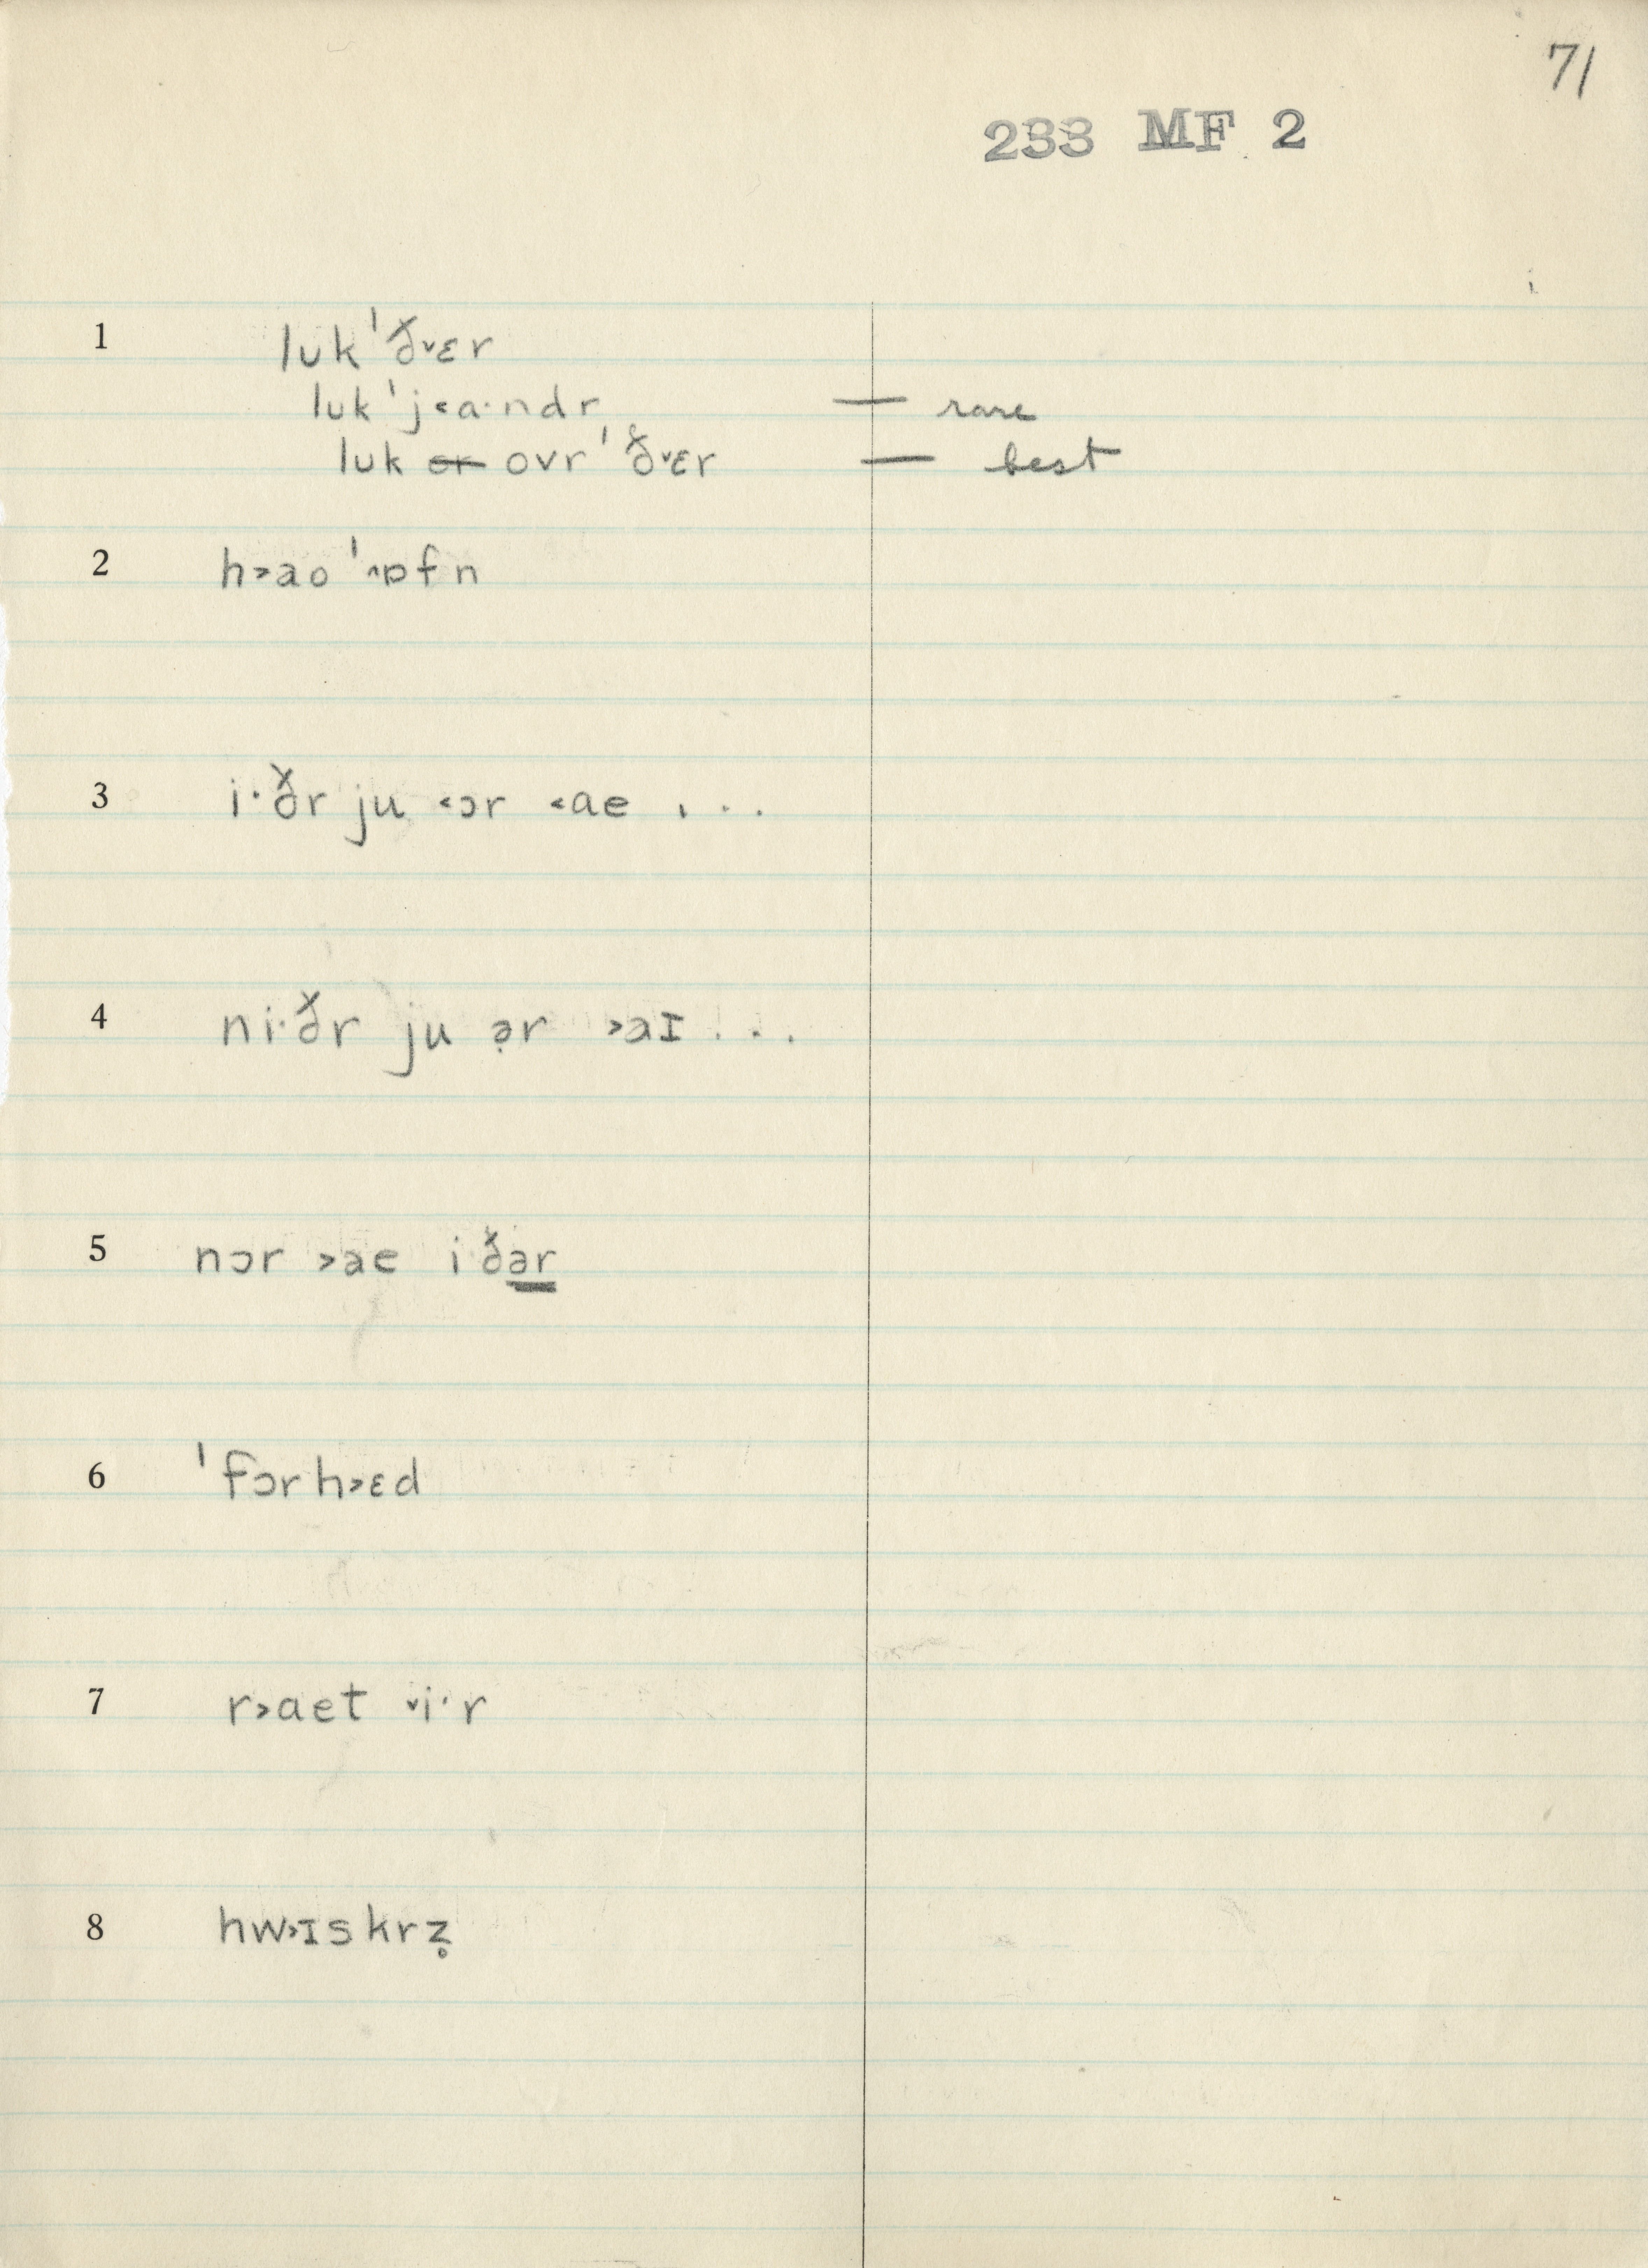 71
233 MF 2
1 lʊk ˈð˅ɛr
lʊk ˈj˂a·ndr — rare
lʊk or ovr ˈð˅ɛr — best
2 h˃ao ˈ˄ɒfn
3 i·ðr ju ˂ɔr ˂ae . . .
4 ni·ðr ju ə̣r ˃aɪ . . .
5 nɔr ˃ae iðər
6 ˈfɔrh˃ɛd
7 r˃aet ˅i·r
8 hw˃ɪskrz̥